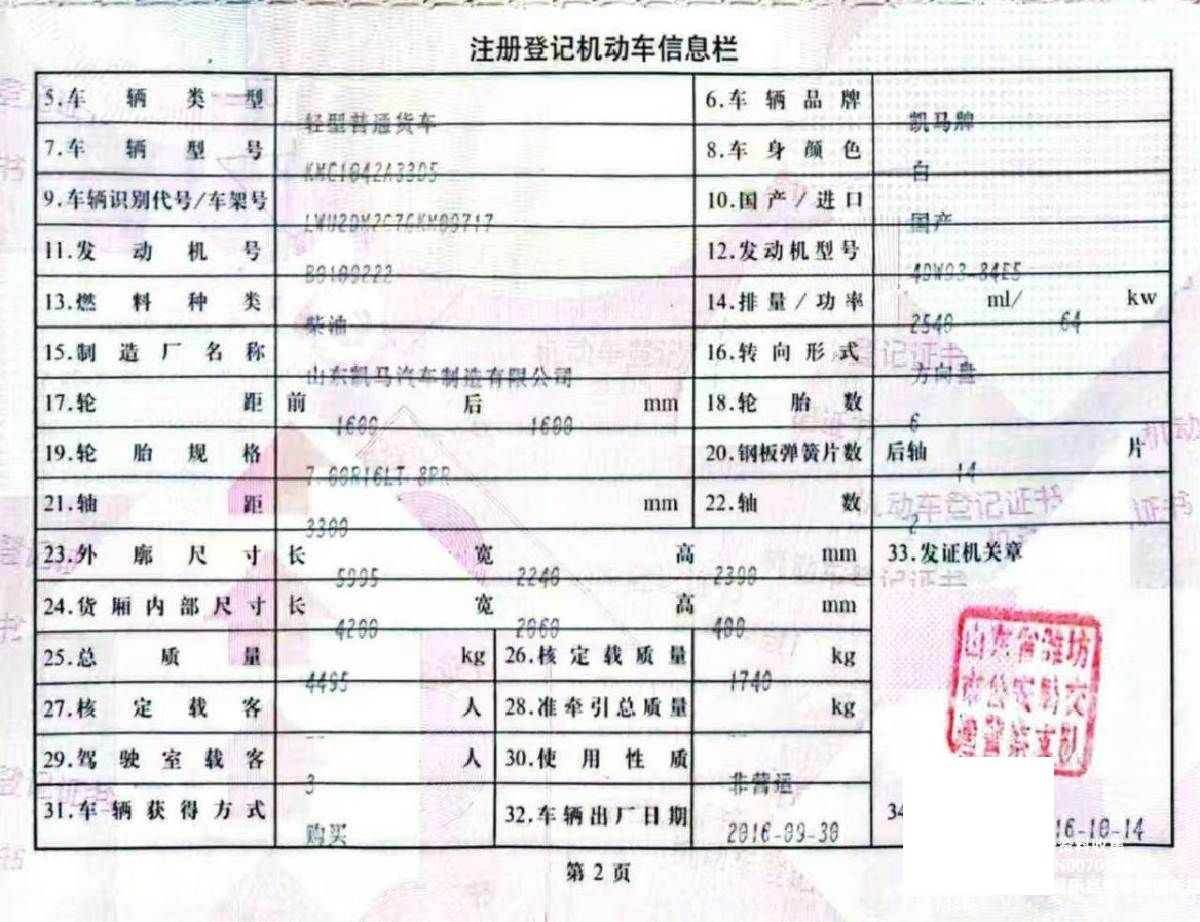 注册登记机动车信息栏
5.车辆类型 轻型普通货车 6.车辆品牌 凯马牌
7.车辆型号 KMC1042A33D5 8.车身颜色 白
9.车辆识别代号/车架号 10.国产/进口 国产
11.发动机号 B0109222 12.发动机型号 4DW93-84E5
13.燃料种类 柴油 14.排量/功率 2540 ml/ 64 kw
15.制造厂名称 山东凯马汽车制造有限公司 16.转向形式 方向盘
17.轮距 前 1600 后 1600 mm 18.轮胎数 6
19.轮胎规格 7.00R16LT 8PR 20.钢板弹簧片数 后轴 14 片
21.轴距 3300 mm 22.轴数 2
23.外廓尺寸 长 5995 宽 2240 高 2300 mm 33.发证机关章
24.货厢内部尺寸 长 4200 宽 2060 高 400 mm
25.总质量 4495 kg 26.核定载质量 1740 kg
27.核定载客 -- 人 28.准牵引总质量 -- kg
29.驾驶室载客 3 人 30.使用性质 非营运
31.车辆获得方式 购买 32.车辆出厂日期 2016-09-30 34 16-10-14
山东省潍坊
市公安局交
通警察支队
第 2 页